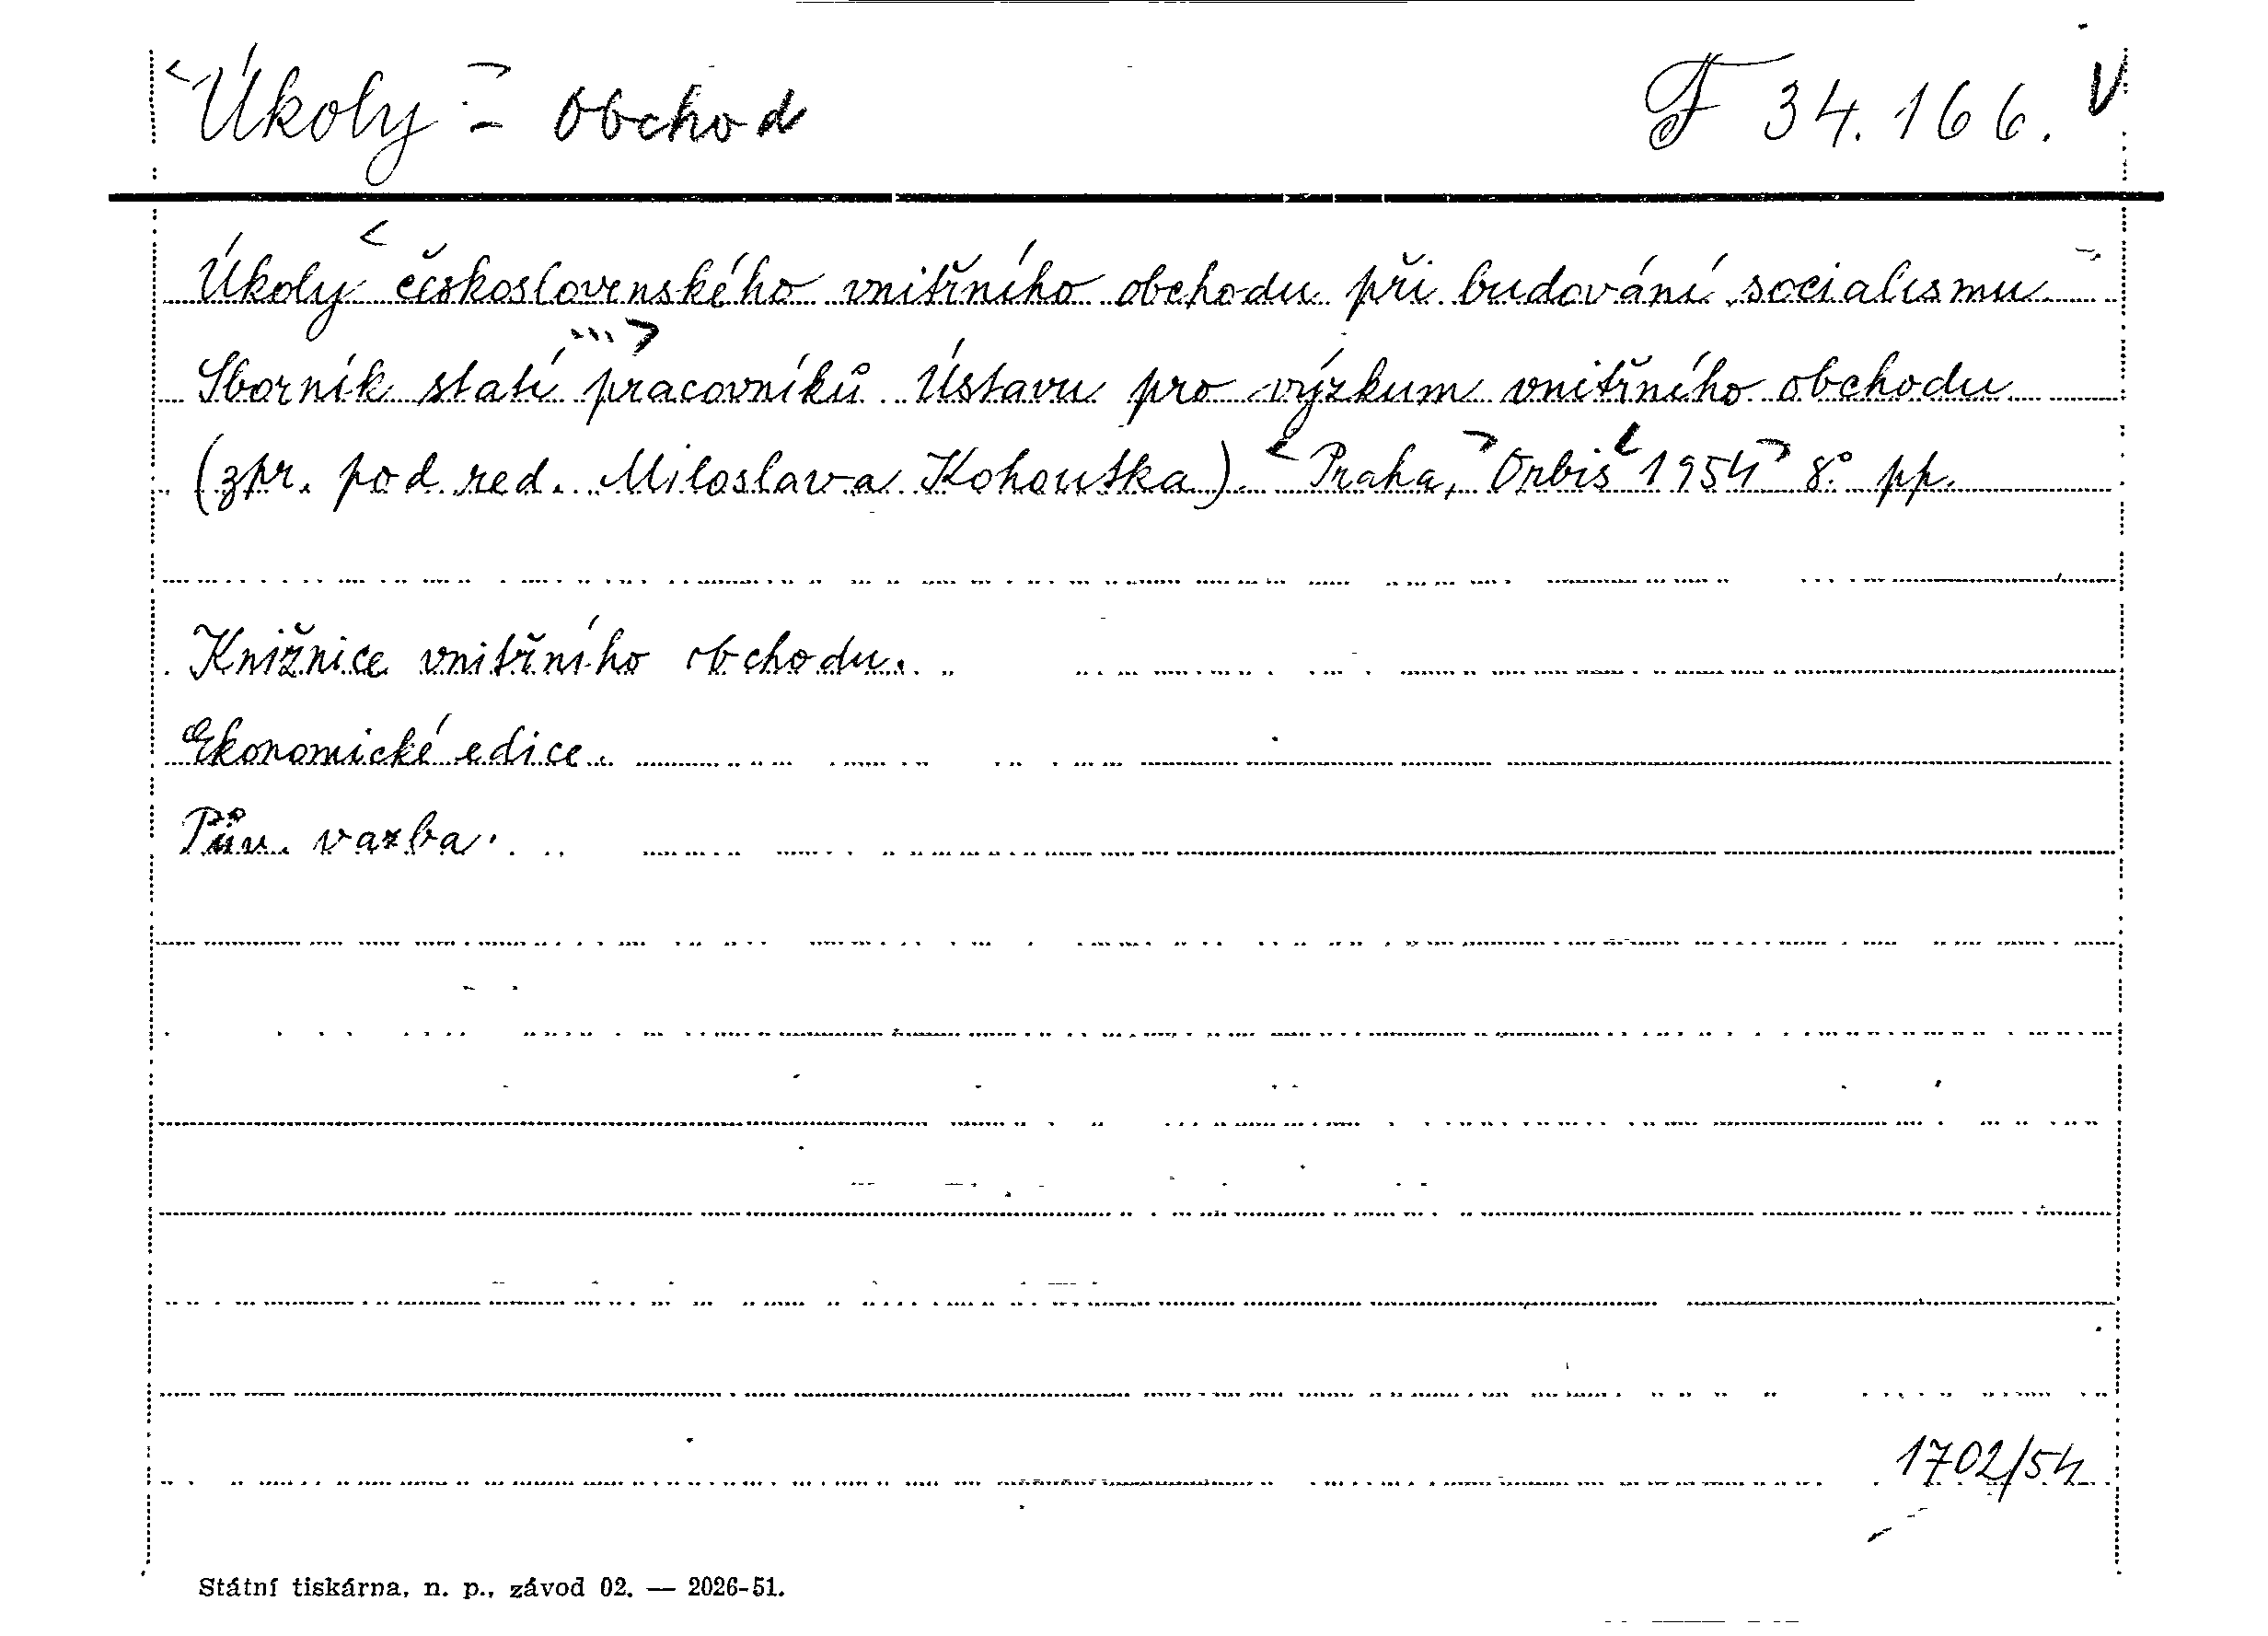 Úkoly - obchod F 34.166.
Úkoly československého vnitřního obchodu při budování socialismu
Sborník statí pracovníků Ústavu pro výzkum vnitřního obchodu
(zpr. pod red. Miloslava Kohoutka). Praha, Orbis 1954 8° pp.
Knižnice vnitřního obchodu.
Ekonomické edice.
Pův. vazba.
1702/54
Státní tiskárna, n. p., závod 02. — 2026-51.